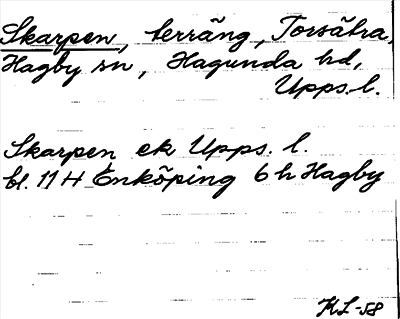 Skarpen, terräng, Torsätra,
Hagby sn, Hagunda hd,
Upps. l.
Skarpen ek Upps. l.
bl. 11 H Enköping 6 h Hagby
KL-58